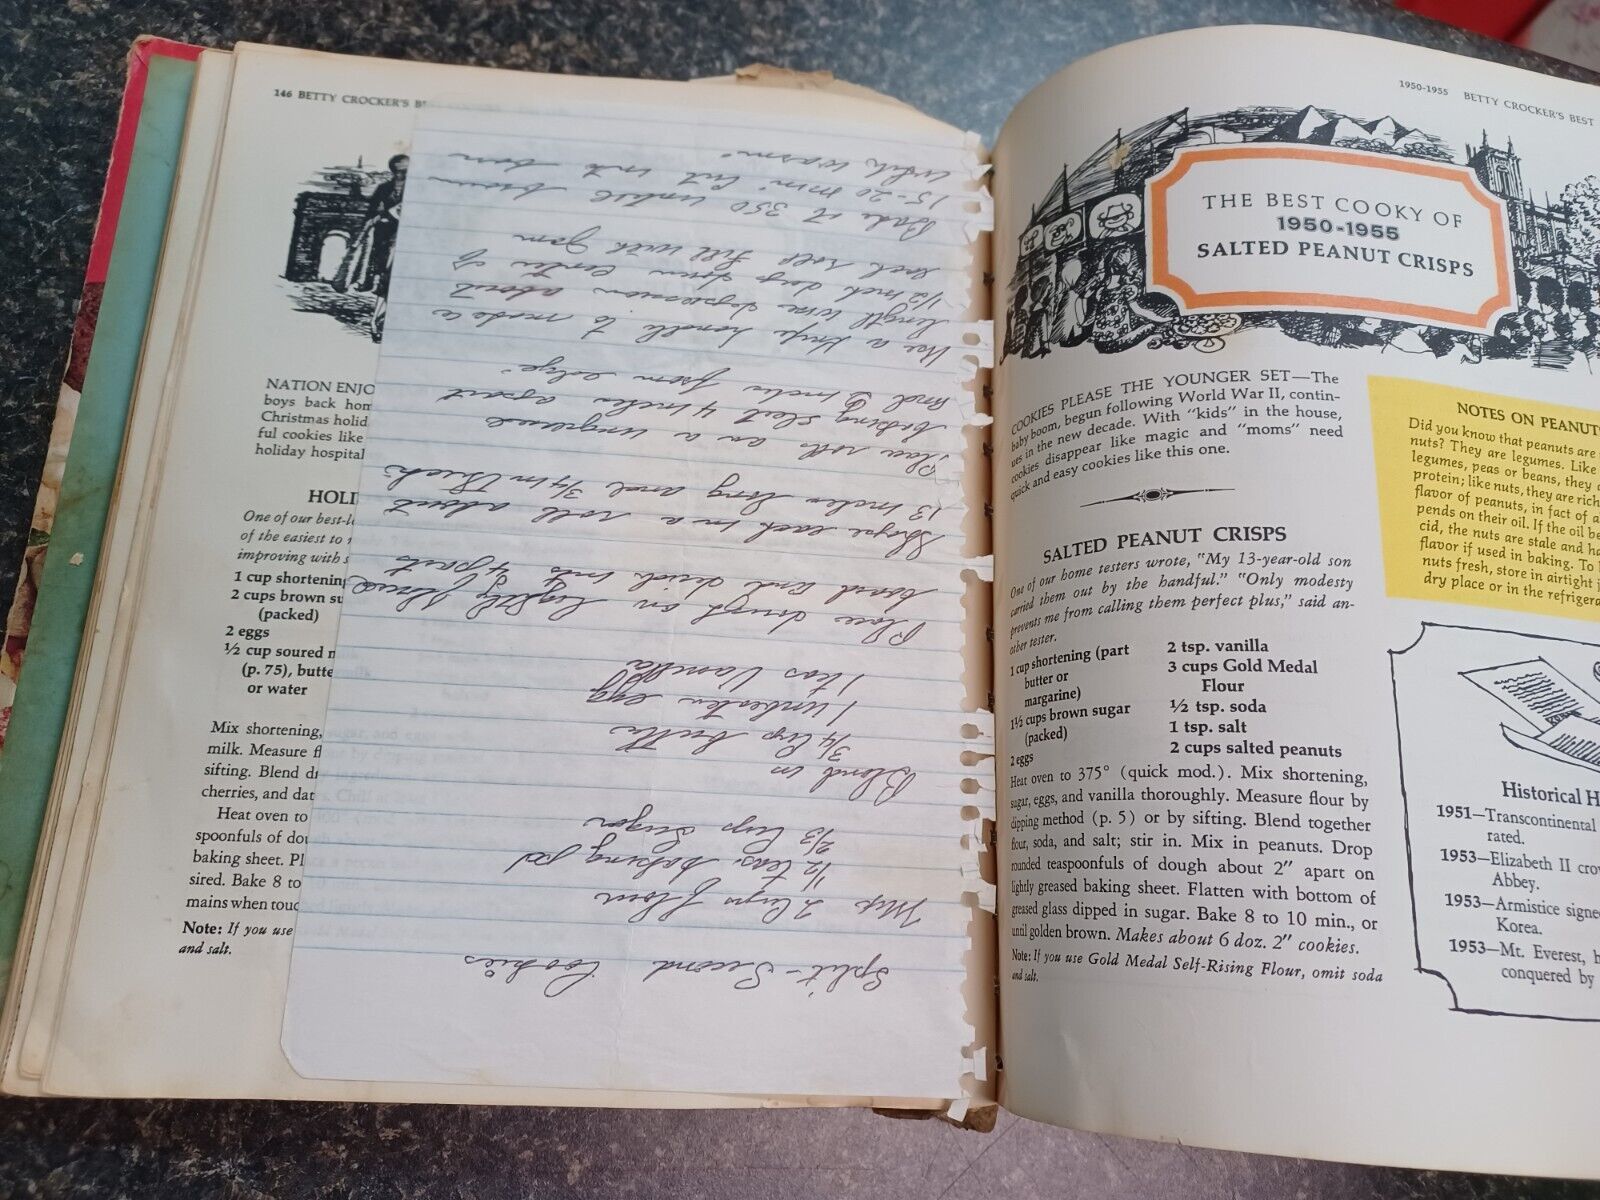 146 BETTY CROCKER'S
NATION ENJO
boys back hom
Christmas holid
ful cookies like
holiday hospital
HOLI
One of our best-l
of the easiest to
improving with s
1 cup shortening
2 cups brown su
(packed)
2 eggs
½ cup soured m
(p. 75), butte
or water
Mix shortening,
milk. Measure fl
sifting. Blend dr
cherries, and dat
Heat oven to
spoonfuls of dou
baking sheet. Pl
sired. Bake 8 to
mains when touc
Note: If you use
and salt.
Split-Second Cookies
Mix 2 Cups flour
1/2 teas. baking pd
2/3 Cup Sugar
Blend in
3/4 Cup Butter
1 unbeaten egg
1 teas Vanilla
Place dough on lightly floured
board and divide into 4 parts
Shape each in a roll about
13 inches long and 3/4 in thick.
Place rolls on a ungreased
baking sheet 4 inches apart
and 2 inches from edge.
Use a knife handle to made a
length wise depression about
1/2 inch deep down center of
each roll fill with Jam
Bake at 350 until brown
15-20 min. Cut into bars
while warm.
1950-1955 BETTY CROCKER'S BEST
THE BEST COOKY OF
1950-1955
SALTED PEANUT CRISPS
COOKIES PLEASE THE YOUNGER SET—The
baby boom, begun following World War II, contin-
ues in the new decade. With "kids" in the house,
cookies disappear like magic and "moms" need
quick and easy cookies like this one.
SALTED PEANUT CRISPS
One of our home testers wrote, "My 13-year-old son
carried them out by the handful." "Only modesty
prevents me from calling them perfect plus," said an-
other tester.
1 cup shortening (part
butter or
margarine)
1½ cups brown sugar
(packed)
2 eggs
2 tsp. vanilla
3 cups Gold Medal
Flour
½ tsp. soda
1 tsp. salt
2 cups salted peanuts
Heat oven to 375° (quick mod.). Mix shortening,
sugar, eggs, and vanilla thoroughly. Measure flour by
dipping method (p. 5) or by sifting. Blend together
flour, soda, and salt; stir in. Mix in peanuts. Drop
rounded teaspoonfuls of dough about 2" apart on
lightly greased baking sheet. Flatten with bottom of
greased glass dipped in sugar. Bake 8 to 10 min., or
until golden brown. Makes about 6 doz. 2" cookies.
Note: If you use Gold Medal Self-Rising Flour, omit soda
and salt.
NOTES ON PEANUT
Did you know that peanuts are
nuts? They are legumes. Like
legumes, peas or beans, they
protein; like nuts, they are rich
flavor of peanuts, in fact of a
pends on their oil. If the oil be
cid, the nuts are stale and ha
flavor if used in baking. To
nuts fresh, store in airtight j
dry place or in the refrigera
Historical H
1951—Transcontinental
rated.
1953—Elizabeth II cro
Abbey.
1953—Armistice signe
Korea.
1953—Mt. Everest, h
conquered by